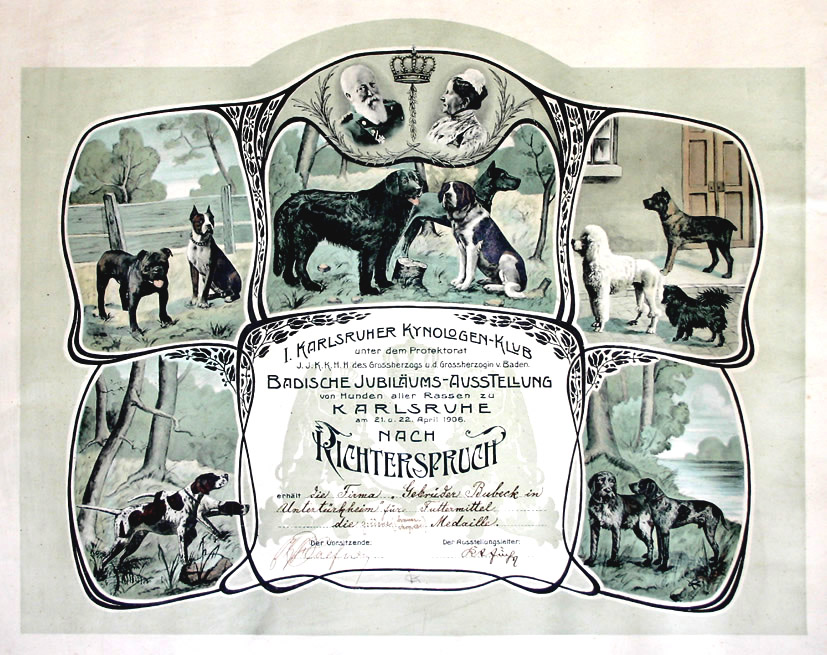 I. KARLSRUHER KYNOLOGEN-KLUB
unter dem Protektorat
J. J. K. K. H. H. des Grossherzogs u. d. Grossherzogin v. Baden.
BADISCHE JUBILÄUMS-AUSSTELLUNG
von Hunden aller Rassen zu
KARLSRUHE
am 21. u. 22. April 1906.
NACH
RICHTERSPRUCH
erhält die Firma „Gebrüder Bubeck in
Untertürkheim" für Futtermittel
die Medaille.
Der Vorsitzende: Der Ausstellungsleiter: